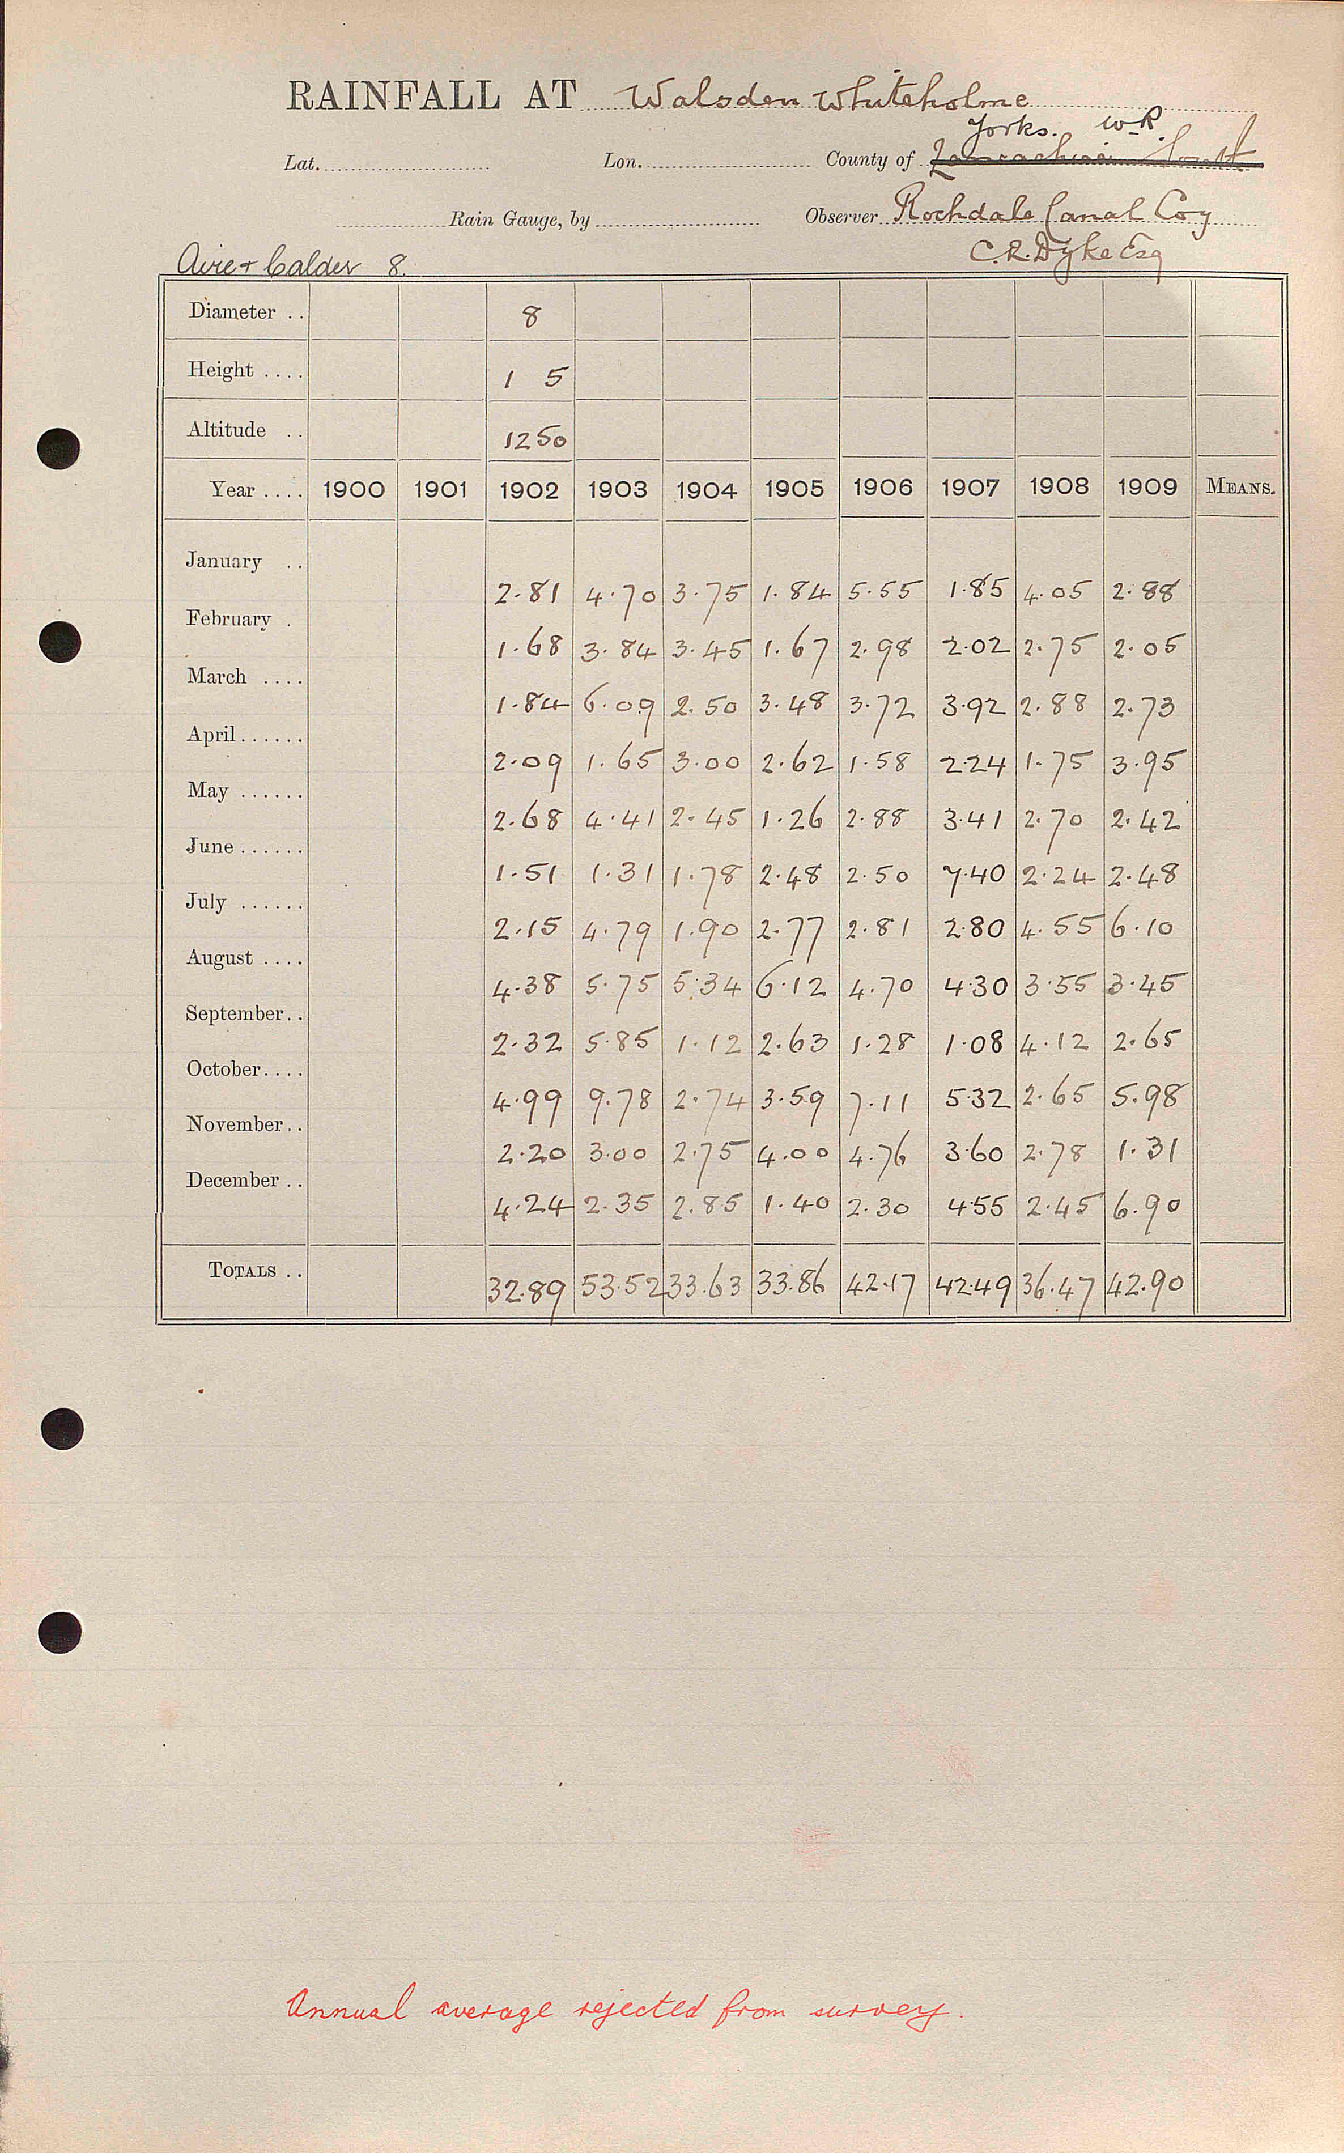 RAINFALL AT Walsden Whiteholme
Yorks. W.R.
Lat. Lon. County of Lancashire
Rain Gauge, by Observer Rochdale Canal Coy
Aire + Calder 8. C.R. Dyke Esq
Diameter .. 8
Height .... 1 5
Altitude .. 1250
Year .... 1900 1901 1902 1903 1904 1905 1906 1907 1908 1909 MEANS.
January .. 2.81 4.70 3.75 1.84 5.55 1.85 4.05 2.88
February . 1.68 3.84 3.45 1.67 2.98 2.02 2.75 2.05
March .... 1.84 6.09 2.50 3.48 3.72 3.92 2.88 2.73
April ...... 2.09 1.65 3.00 2.62 1.58 2.24 1.75 3.95
May ...... 2.68 4.41 2.45 1.26 2.88 3.41 2.70 2.42
June ...... 1.51 1.31 1.78 2.48 2.50 7.40 2.24 2.48
July ...... 2.15 4.79 1.90 2.77 2.81 2.80 4.55 6.10
August .... 4.38 5.75 5.34 6.12 4.70 4.30 3.55 3.45
September .. 2.32 5.85 1.12 2.63 1.28 1.08 4.12 2.65
October .... 4.99 9.78 2.74 3.59 7.11 5.32 2.65 5.98
November .. 2.20 3.00 2.75 4.00 4.76 3.60 2.78 1.31
December .. 4.24 2.35 2.85 1.40 2.30 4.55 2.45 6.90
TOTALS .. 32.89 53.52 33.63 33.86 42.17 42.49 36.47 42.90
Annual average rejected from survey.